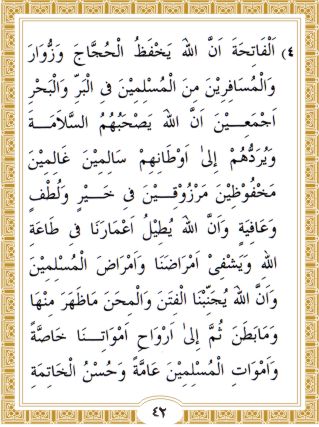 ٤) اَلْفَاتِحَةَ اَنَّ اللهَ يَحْفَظُ الْحُجَّاجَ وَزُّوَارَ
وَالْمُسَافِرِيْنَ مِنَ الْمُسْلِمِيْنَ فِى الْبَرِّ وَالْبَحْرِ
اَجْمَعِيْنَ اَنَّ اللهَ يَصْحَبُهُمُ السَّلَامَةَ
وَيُرَدُّهُمْ اِلىٰ اَوْطَانِهِمْ سَالِمِيْنَ غَالِمِيْنَ
مَحْفُوظِيْنَ مَرْزُوقِيْنَ فِى خَيْرٍ وَلُطْفٍ
وَعَافِيَةٍ وَاَنَّ اللهَ يُطِيْلُ اَعْمَارَنَا فِى طَاعَةِ
اللهِ وَيَشْفىٰ اَمْرَاضَنَا وَاَمْرَاضَ الْمُسْلِمِيْنَ
وَاَنَّ اللهَ يُجَنِّبْنَا الْفِتَنَ وَالْمِحَنَ مَاظَهَرَ مِنْهَا
وَمَابَطَنَ ثُمَّ اِلىٰ اَرْوَاحِ اَمْوَاتِنَا خَاصَّةً
وَاَمْوَاتِ الْمُسْلِمِيْنَ عَامَّةً وَحُسْنُ الْخَاتِمَةِ
٤٢